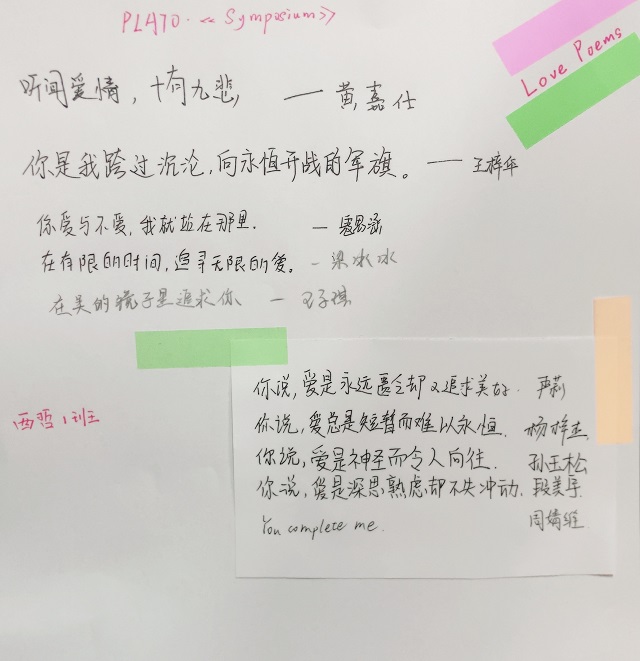 PLATO·《Symposium》
Love Poems
听闻爱情，十有九悲 —— 黄嘉仕
你是我跨过沉沦，向永恒开战的军旗。—— 王梓年
你爱与不爱，我就站在那里. —
在有限的时间，追寻无限的爱。- 梁冰冰
在美的镜子里追求你 — 子琪
西哲1班
你说，爱是永远匮乏却又追求美好. 冉莉
你说，爱总是短暂而难以永恒. 杨梓
你说，爱是神圣而令人向往. 孙玉松
你说，爱是深思熟虑却不失冲动. 段美
You complete me. 周婧